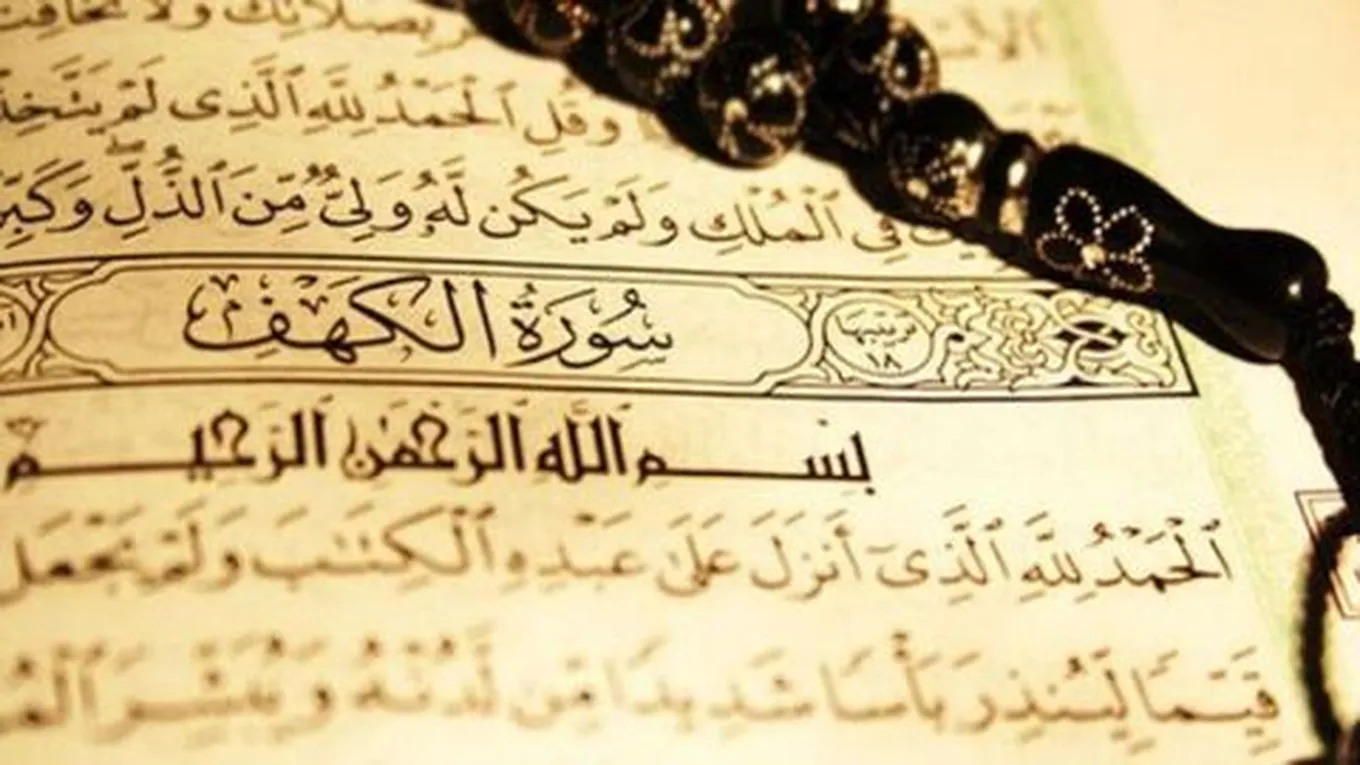 بصلاتك ولا تخافت
وَقُلِ ٱلْحَمْدُ لِلَّهِ ٱلَّذِى لَمْ يَتَّخِذْ
فِى ٱلْمُلْكِ وَلَمْ يَكُن لَّهُۥ وَلِىٌّ مِّنَ ٱلذُّلِّ وَكَبِّر
سُورَةُ الكَهْفِ
ترتيبها ١٨
بِسْمِ ٱللَّهِ ٱلرَّحْمَٰنِ ٱلرَّحِيمِ
ٱلْحَمْدُ لِلَّهِ ٱلَّذِىٓ أَنزَلَ عَلَىٰ عَبْدِهِ ٱلْكِتَٰبَ وَلَمْ يَجْعَل
قَيِّمًا لِّيُنذِرَ بَأْسًا شَدِيدًا مِّن لَّدُنْهُ وَيُبَشِّرَ